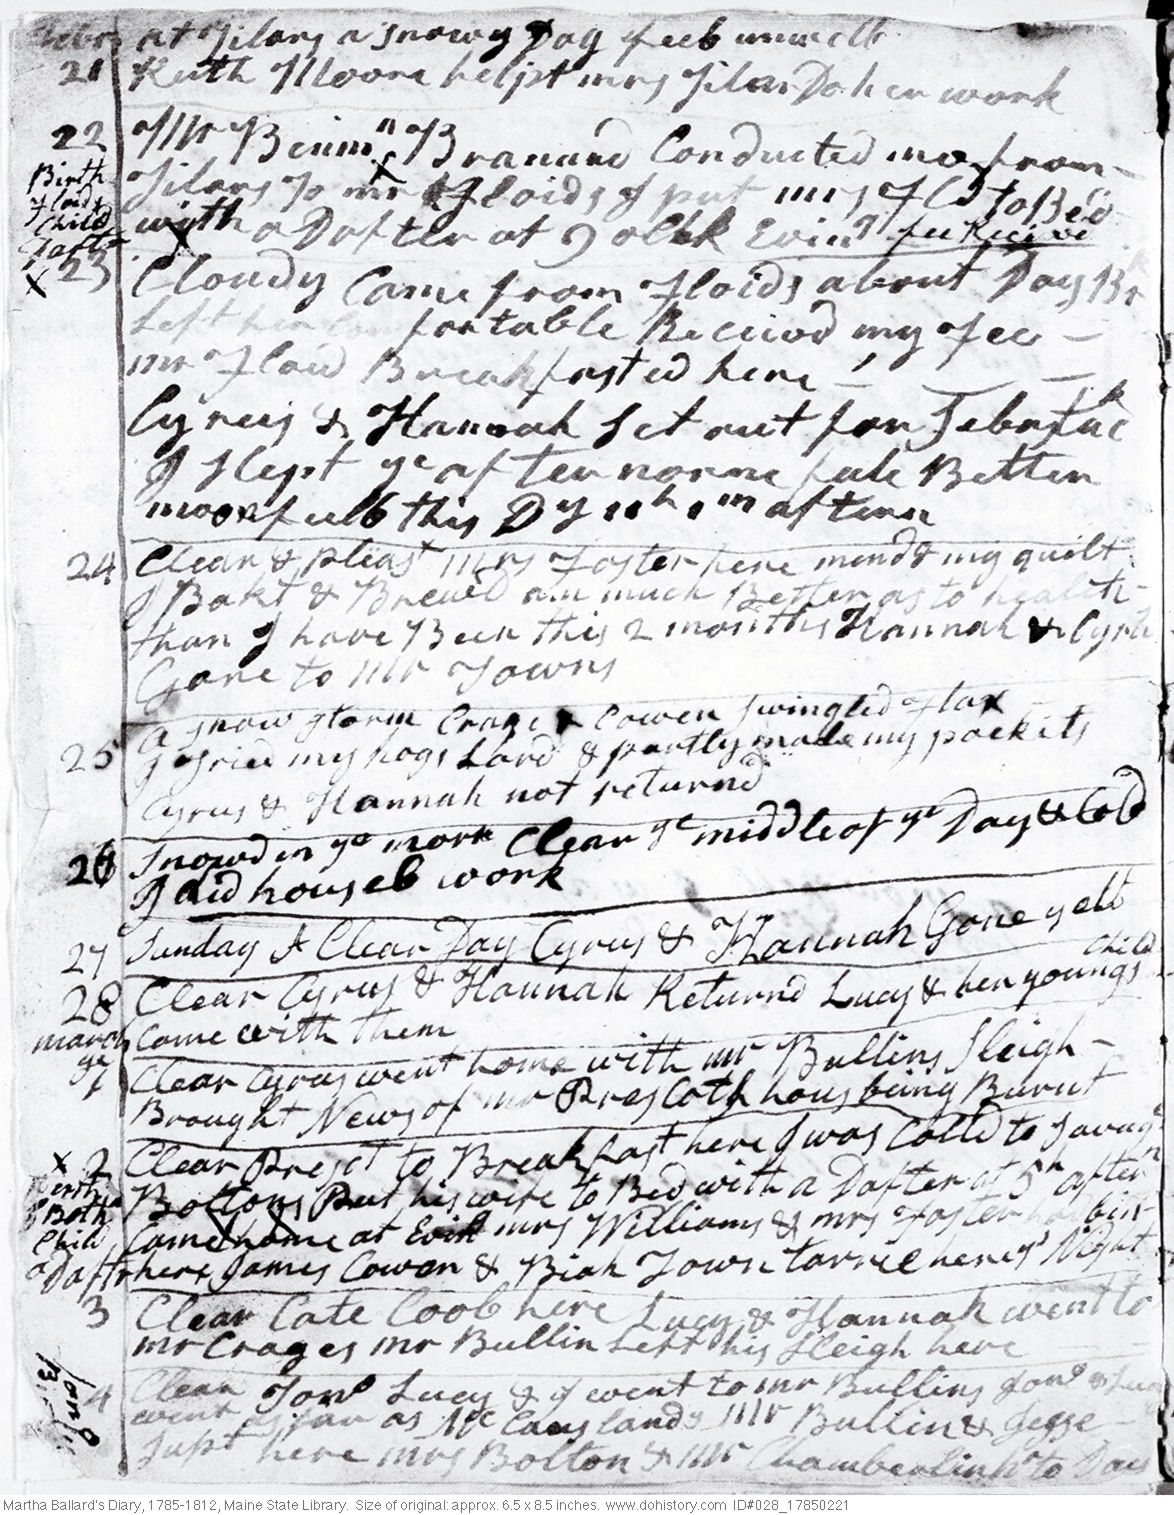 at Jilars a Snowy Day feel unwell
21 Ruth Moore helpt mrs Jilar Do her work
22 Mr Benimn Branard Conducted me from
Birth Jilars To mr Floids I put mrs Fld To Bed
Floids Child with a Dafter at 9 olkk Evinn fee Receivd
Daftr
X 23 Cloudy Came from Floids about Day Br
Left her Comfortable Receivd my fee
mr Floid Breakfasted here
Cyrus & Hannah Set out for
I Slept ye after noone feele Better
moon fulls this Dy 11h 1m aftern
24 Clear & pleast mrs Foster here mend my quilt
I Bakt & Brewd am much Better as to health
than I have Been this 2 months Hannah & Cyrus
Gone to Mr Towns
25 A Snow Storm Crage & Cowen Swingled Flax
I Tried my hogs Lard & partly made my pockits
Cyrus & Hannah not returnd
26 Snowd in ye morn Clear ye middle of ye Day & Cold
I did household work
27 Sunday A Clear Day Cyrus & Hannah Gone yett
Child
28 Clear Cyrus & Hannah Returnd Lucy & her youngs
Came with them
march ye 1 Clear Cyrus went home with mr Bullins Sleigh
Brought News of mr Prescoth hous being Burnt
X 2 Clear Presct to Breakfast here I was Calld to Savage
Birth Boltons Put his wife to Bed with a Dafter at 5h aftern
Child Came home at Evin mrs Williams & mrs Foster
a Daftr here James Cowen & Biah Town tarrie here ys Night
3 Clear Cate Coob here Lucy & Hannah went to
mr Crages mr Bullin Left his Sleigh here
4 Clear Jono Lucy & I went to mr Bullins Jono & Lucy
went as far as Mc Causlands Mr Bullin & Jesse
Supt here mrs Bolton & Mr Chamberlin hr to Day
Martha Ballard's Diary, 1785-1812, Maine State Library. Size of original: approx. 6.5 x 8.5 inches. www.dohistory.com ID#028_17850221